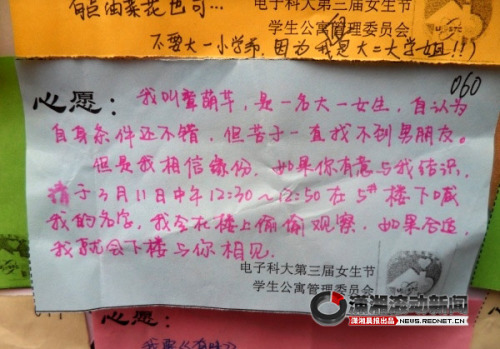 有点油菜花也可…
电子科大第三届女生节
学生公寓管理委员会
不要大一小学弟，因为我是大二大学姐!!)
060
心愿：我叫龚萌芊，是一名大一女生，自认为
自身条件还不错，但苦于一直找不到男朋友。
但是我相信缘份，如果你有意与我结识，
请于3月11日中午12:30～12:50在5#楼下喊
我的名字，我会在楼上偷偷观察，如果合适，
我就会下楼与你相见。
电子科大第三届女生节
学生公寓管理委员会
潇湘滚动新闻
潇湘晨报出品 NEWS.REDNET.CN
心愿：